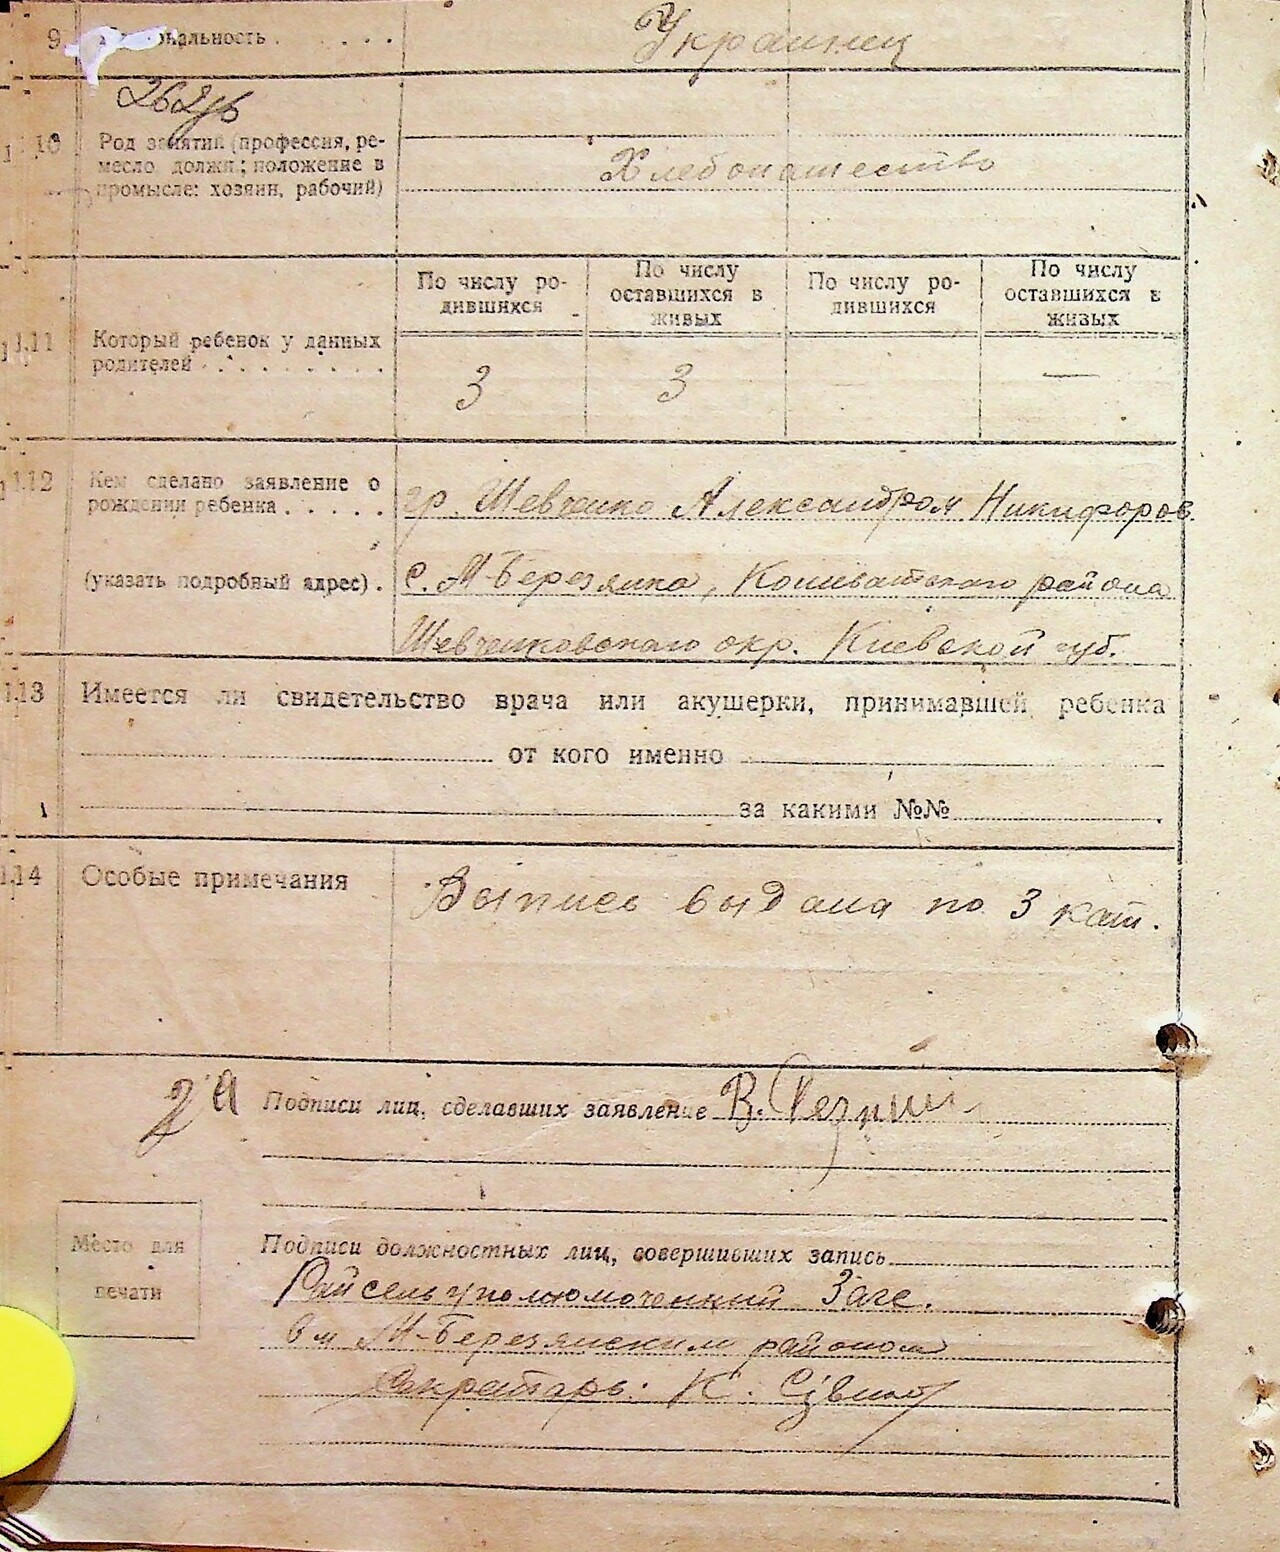 9 Национальность . . . . . .
Украинец
10 Род занятий (профессия, ре-
месло должн.; положение в
промысле: хозяин, рабочий)
Хлебопашество
По числу ро-
дившихся
По числу
оставшихся в
живых
По числу ро-
дившихся
По числу
оставшихся в
живых
11 Который ребенок у данных
родителей . . . . . . . . .
3 3 —
12 Кем сделано заявление о
рождении ребенка . . . . .
(указать подробный адрес) .
гр. Шевченко Александром Никифоров.
с. М-Березянка, Кошеватского района
Шевченковского окр. Киевской губ.
13 Имеется ли свидетельство врача или акушерки, принимавшей ребенка
от кого именно
за какими №№
14 Особые примечания
Выпись выдана по 3 кат.
Подписи лиц, сделавших заявление В.
Место для
печати
Подписи должностных лиц, совершивших запись
Загс.
М-Березянским районом
Секретарь: К.